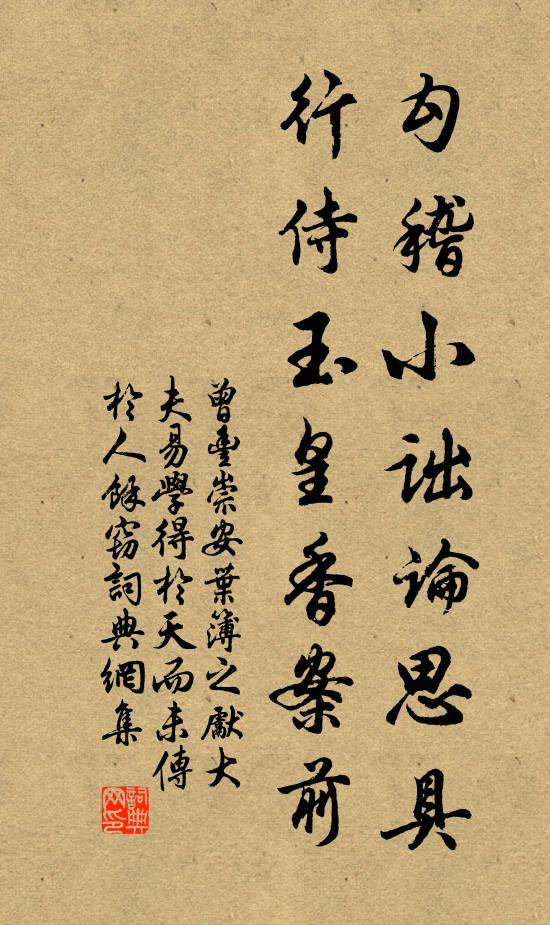 勾稽小詘論思具
行侍玉皇香案前
曾豐崇安葉簿之獻大
夫易學得於天而未傳
於人餘竊詞典網集
詞典網印